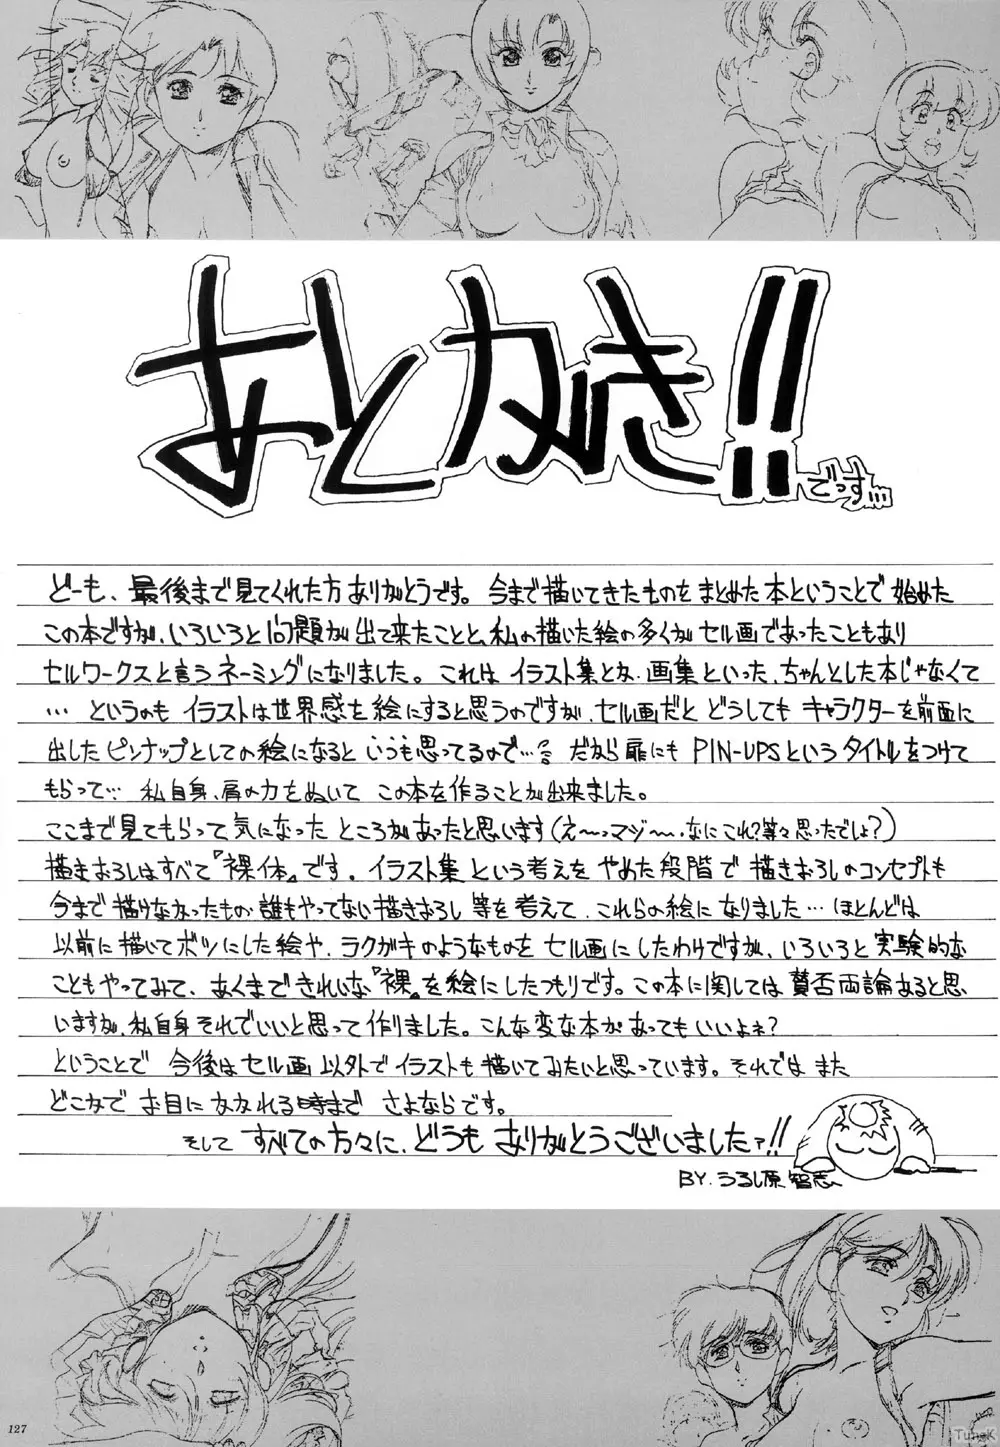 あとがき!!
でっす…
どーも、最後まで見てくれた方ありがとうです。今まで描いてきたものをまとめた本ということで始めた
この本ですが、いろいろと問題が出て来たことと、私の描いた絵の多くがセル画であったこともあり
セルワークスと言うネーミングになりました。これはイラスト集とか、画集といった、ちゃんとした本じゃなくて
…というのもイラストは世界感を絵にすると思うのですが、セル画だとどうしてもキャラクターを前面に
出したピンナップとしての絵になるといつも思ってるので…。だから扉にもPIN-UPSというタイトルをつけて
もらって…私自身、肩の力をぬいてこの本を作ることが出来ました。
ここまで見てもらって気になったところがあったと思います(え〜っマジ〜、なにこれ?等々思ったでしょ?)
描きおろしはすべて『裸体』です。イラスト集という考えをやめた段階で描きおろしのコンセプトも
今まで描けなかったもの・誰もやってない描きおろし等を考えて、これらの絵になりました…ほとんどは
以前に描いてボツにした絵や、ラクガキのようなものをセル画にしたわけですが、いろいろと実験的な
こともやってみて、あくまできれいな『裸』を絵にしたつもりです。この本に関しては賛否両論あると思
いますが、私自身それでいいと思って作りました。こんな変な本があってもいいよね?
ということで今後はセル画以外でイラストも描いてみたいと思っています。それではまた
どこかでお目にかかれる時までさよならです。
そしてすべての方々に、どうもありがとうございましたァ!!
BY.うるし原智志
127
TuneK